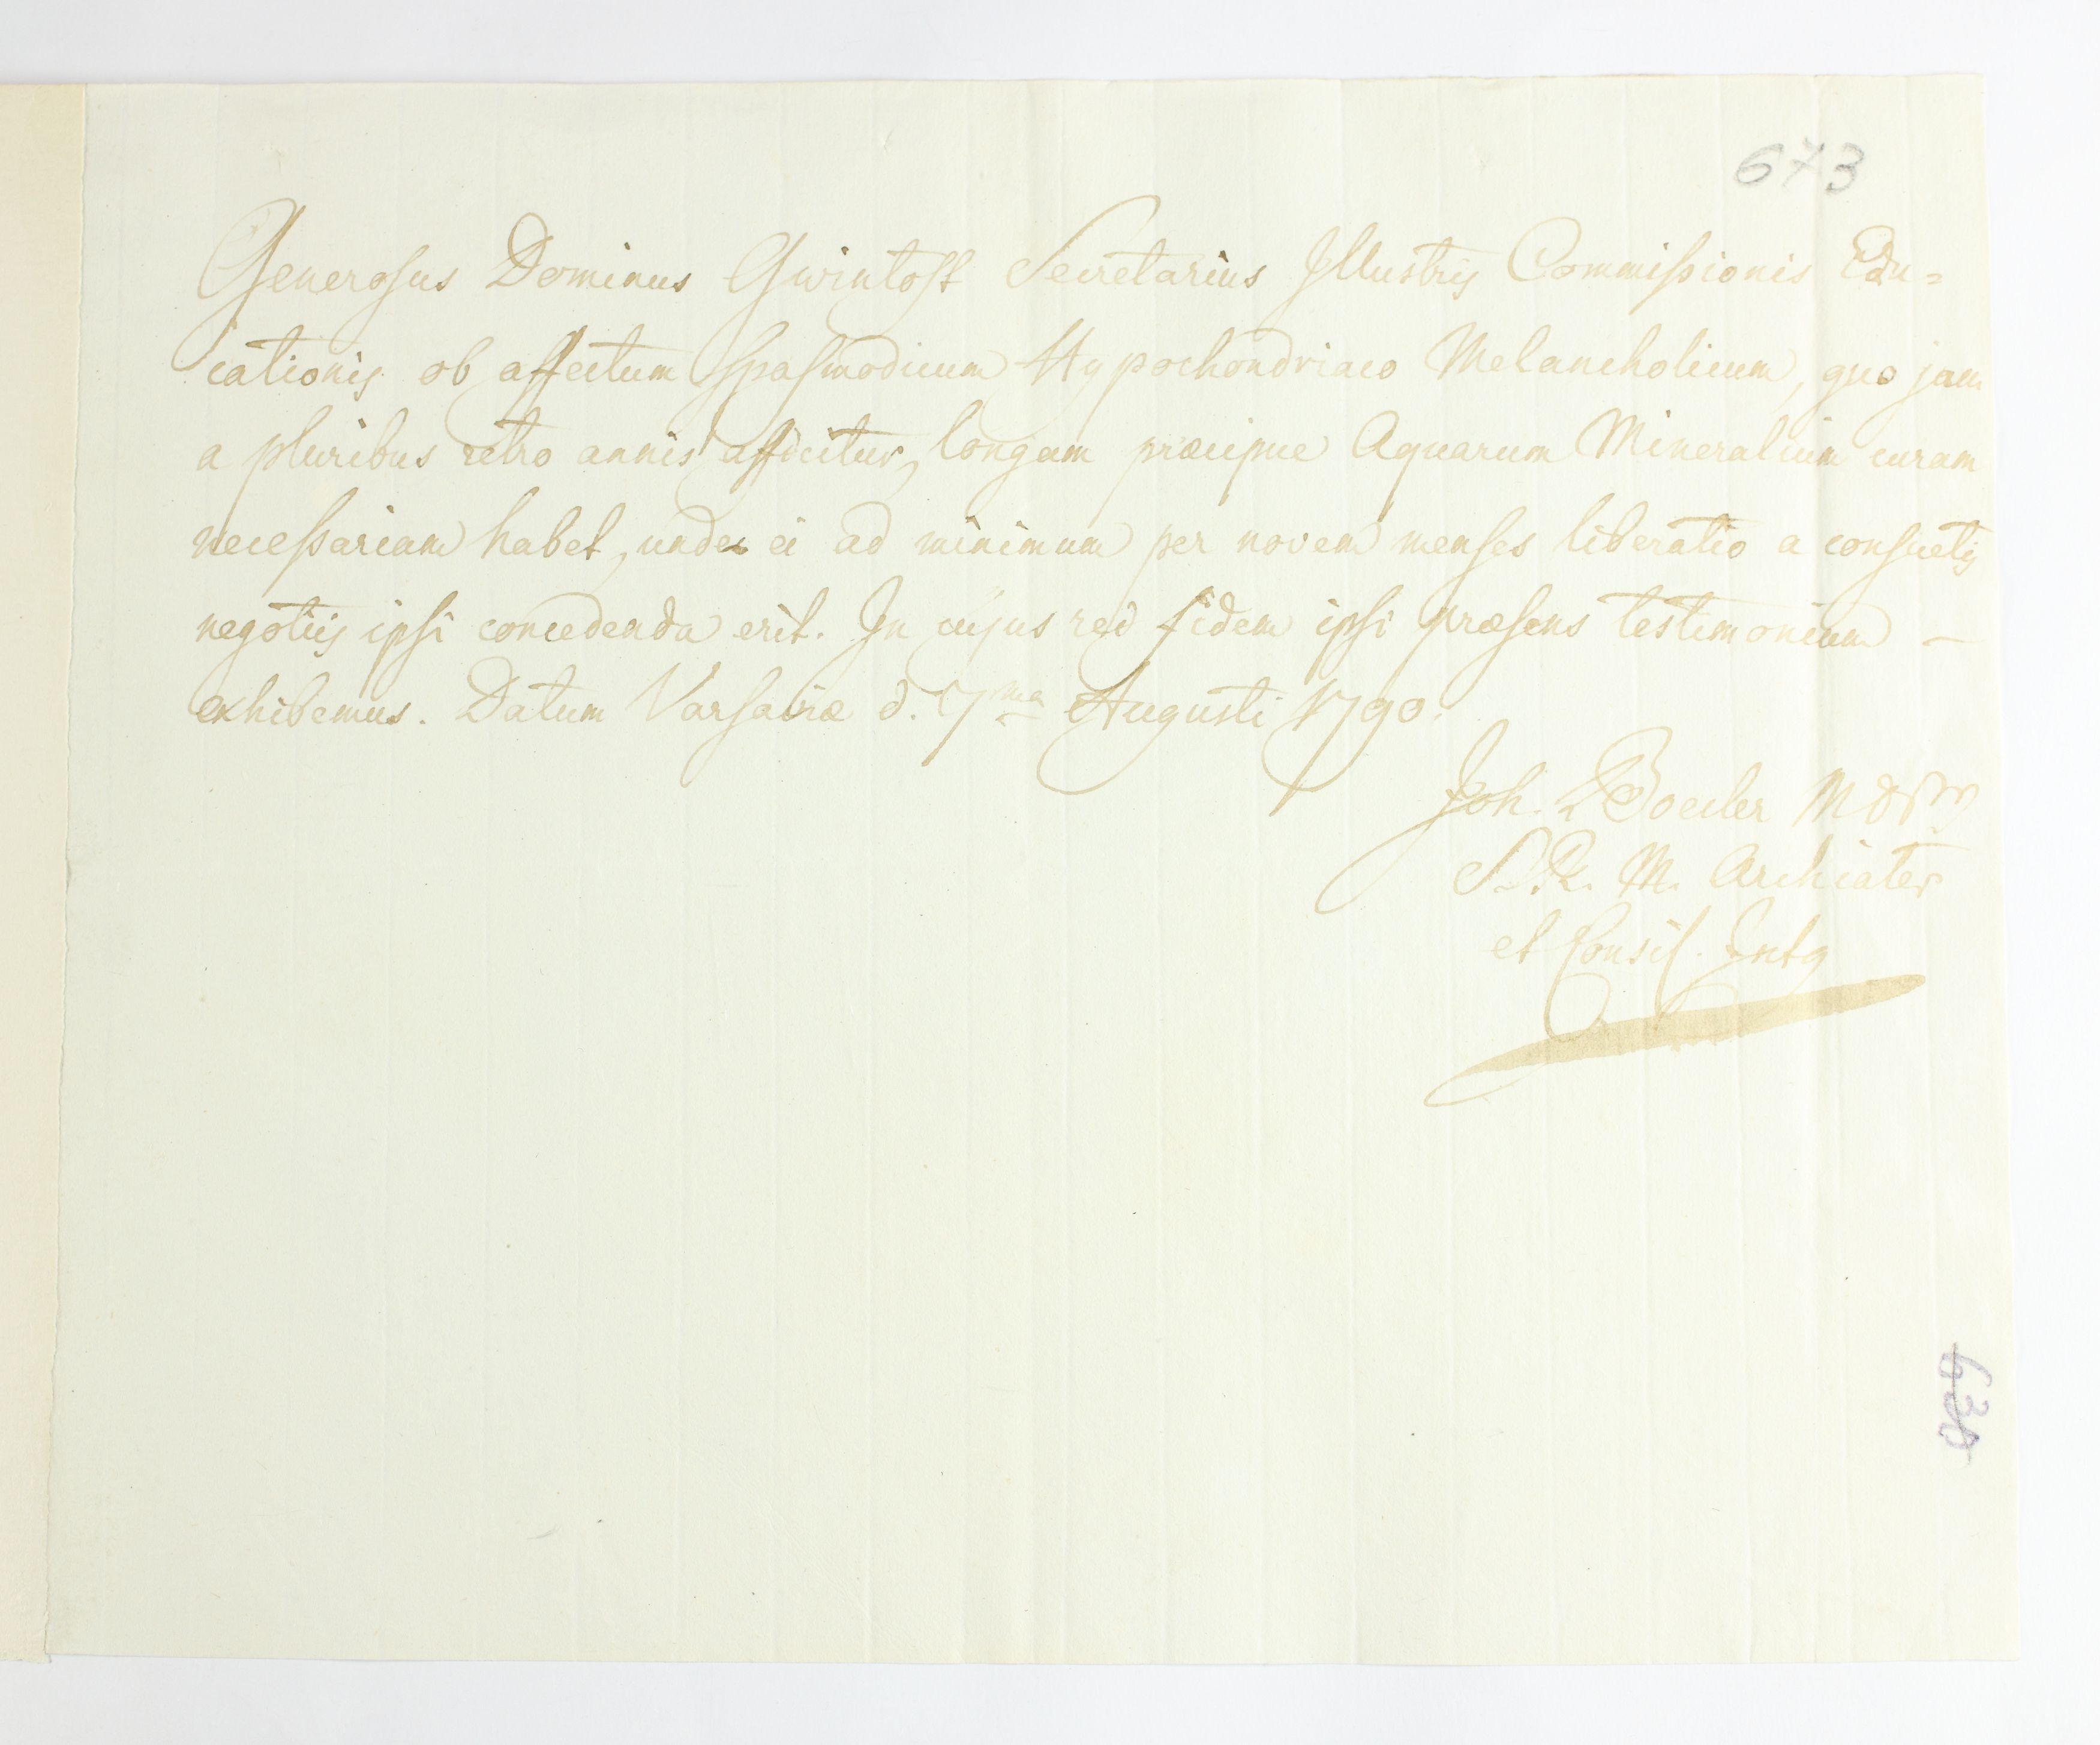 673
Generosus Dominus Gwintoft Secretarius Illustris Commissionis Edu=
cationis ob affectum spasmodicum Hypochondriaco Melancholicum, quo jam
a pluribus retro annis afficitur, longam præcipue Aquarum Mineralium curam
necessariam habet, unde ei ad minimum per novem menses liberatio a consuetis
negotiis ipsi concedenda erit. In cujus rei fidem ipsi præsens testimonium –
exhibemus. Datum Varsaviæ d. 7ma Augusti 1790.
Joh. Boecler
S. R. M. Archiater
et Consil. Int